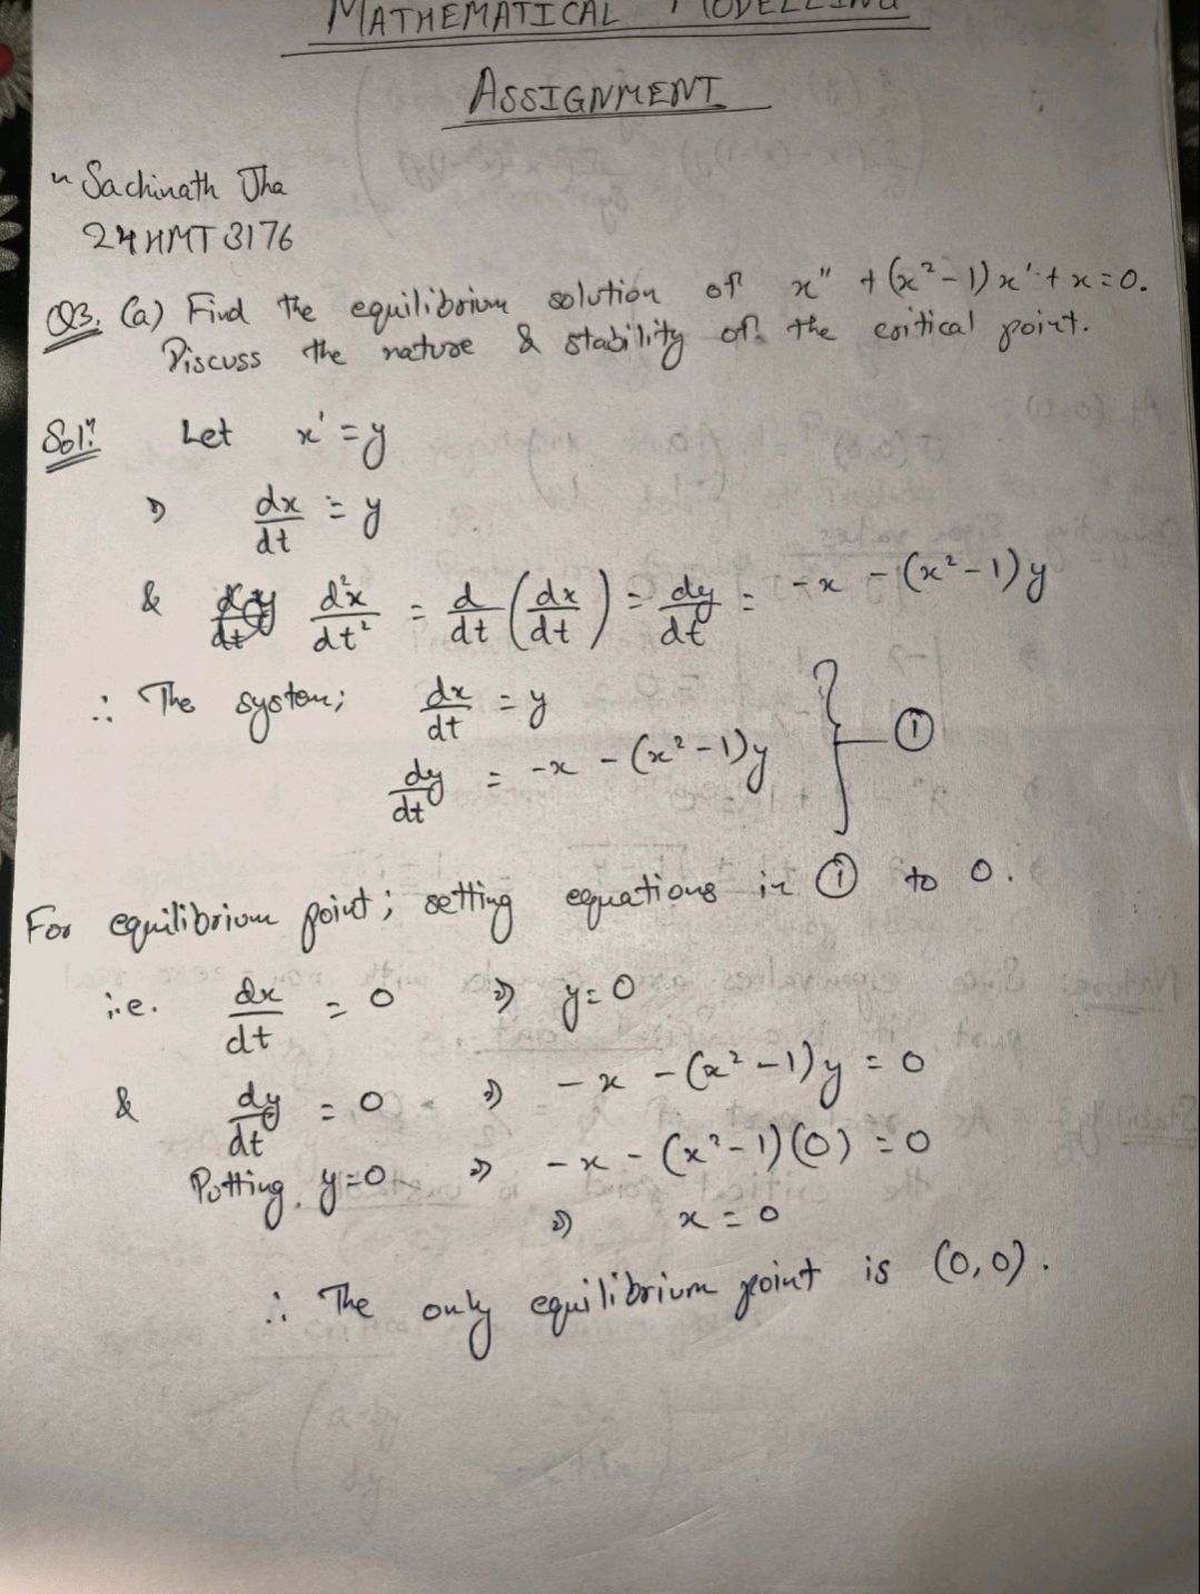 MATHEMATICAL MODELLING
ASSIGNMENT
~ Sachinath Jha
24HMT3176
Q3. (a) Find the equilibrium solution of x" + (x² - 1) x' + x = 0.
Discuss the nature & stability of the critical point.
Solⁿ: Let x' = y
⇒ dx/dt = y
& d²x/dt² = d/dt (dx/dt) = dy/dt = -x - (x² - 1)y
∴ The system; dx/dt = y
dy/dt = -x - (x² - 1)y } — ①
For equilibrium point; setting equations in ① to 0.
i.e. dx/dt = 0 ⇒ y = 0
& dy/dt = 0 ⇒ -x - (x² - 1)y = 0
Putting, y = 0 ⇒ -x - (x² - 1)(0) = 0
⇒ x = 0
∴ The only equilibrium point is (0, 0).